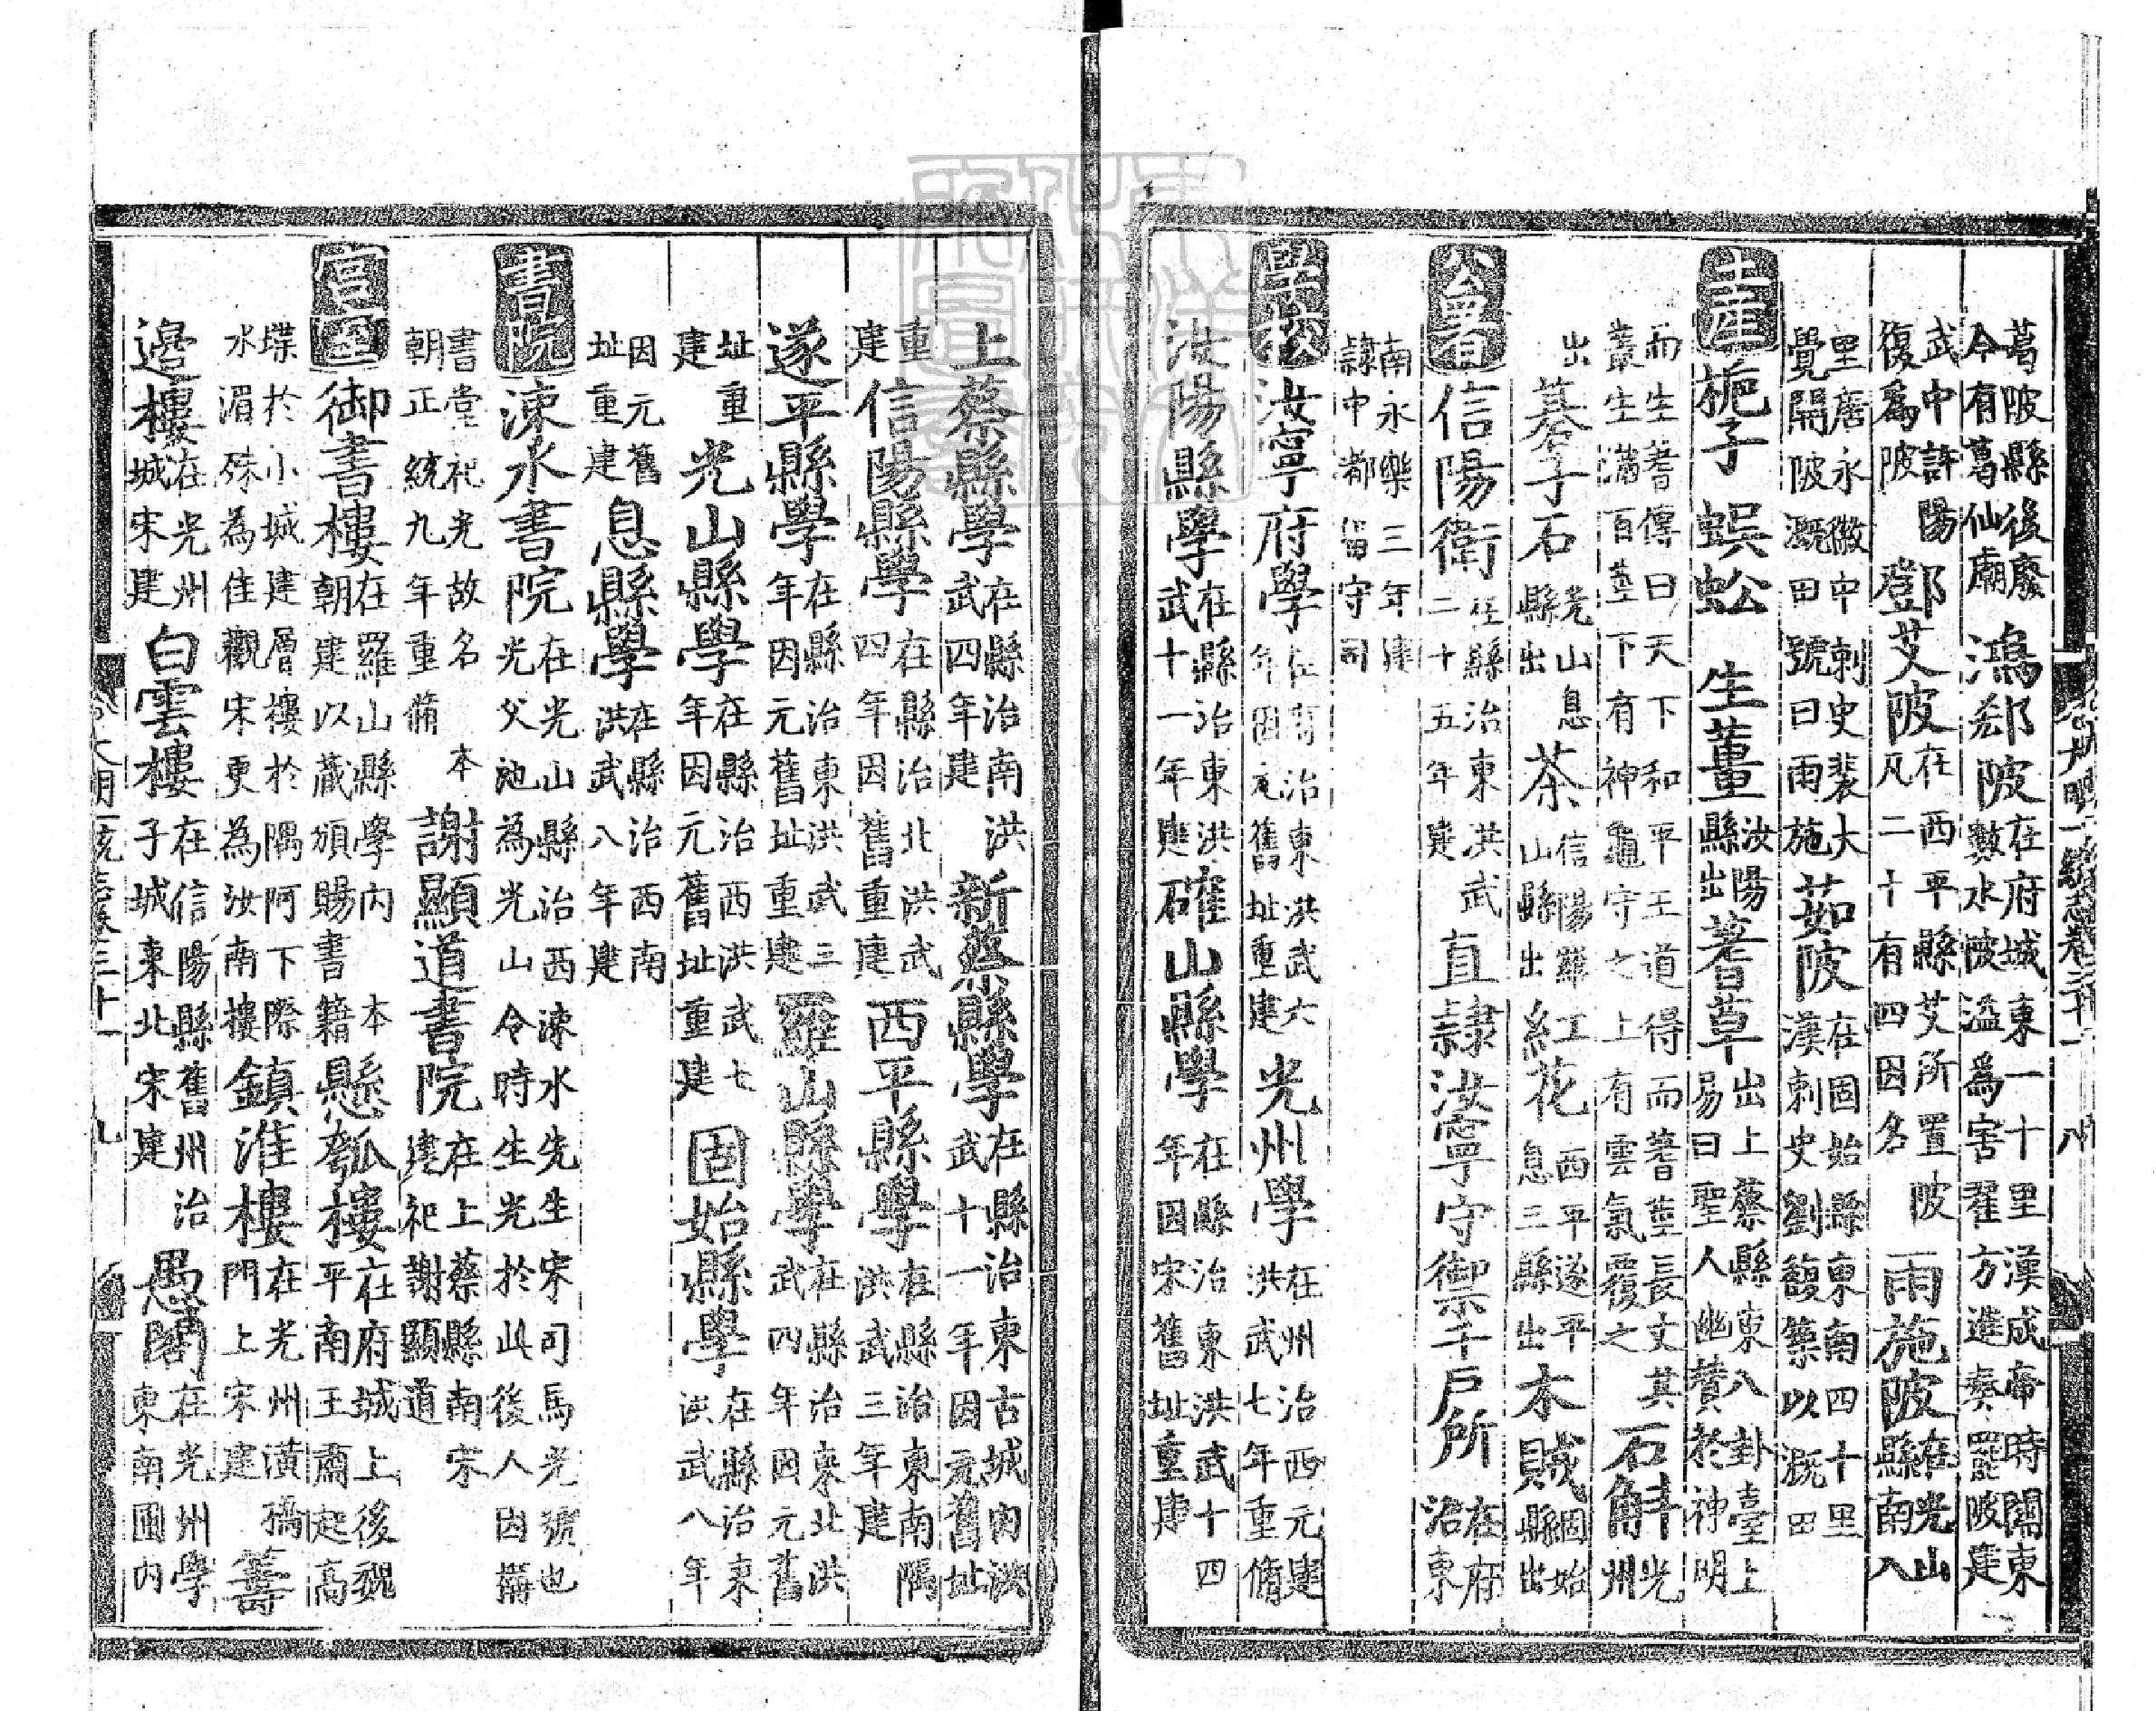 葛陂縣後廢今有葛仙廟鴻郄陂在府城東一十里漢成帝時關東數水陂溢爲害翟方進奏罷陂建
武中許陽復爲陂鄧艾陂在西平縣艾所置陂凡二十有四因名雨施陂在光山縣南入
里唐永徽中刺史裴大覺開陂溉田號曰雨施茹陂在固始縣東南四十里漢刺史劉馥築以溉田
土産梔子 蜈蚣 生薑汝陽縣出蓍草出上蔡縣東八卦臺上易曰聖人幽贊於神明
而生蓍傳曰天下和平王道得而蓍莖長丈其叢生滿百莖下有神龜守之上有雲氣覆之石斛光州
出碁子石光山息縣出茶信陽羅山縣出紅花西平遂平息三縣出木賊固始縣出
公署信陽衛在縣治東洪武二十五年建直隸汝寧守禦千戶所在府治東
南永樂三年建隸中都留守司
學校汝寧府學在府治東洪武六年因元舊址重建光州學在州治西元建洪武七年重脩
汝陽縣學在縣治東洪武十一年建確山縣學在縣治東洪武十四年因宋舊址重建
大明一統志卷三十一 八
上蔡縣學在縣治南洪武四年建新蔡縣學在縣治東古城內洪武十一年因元舊址
重建信陽縣學在縣治北洪武四年因舊重建西平縣學在縣治東南隅洪武三年建
遂平縣學在縣治東洪武三年因元舊址重建羅山縣學在縣治東北洪武四年因元舊
址重建光山縣學在縣治西洪武七年因元舊址重建固始縣學在縣治東洪武八年
因元舊址重建息縣學在縣治西南洪武八年建
書院涑水書院在光山縣治西涑水先生宋司馬光號也光父池為光山令時生光於此後人因搆
書堂祀光故名本朝正統九年重脩謝顯道書院在上蔡縣南宋建祀謝顯道
宮室御書樓在羅山縣學內本朝建以藏頒賜書籍懸瓠樓在府城上後魏平南王肅起高
堞於小城建層樓於隅阿下際水湄殊為佳觀宋更為汝南樓鎮淮樓在光州潢橋門上宋建籌
邊樓在光州城宋建白雲樓在信陽縣舊州治子城東北宋建愚閣在光州學東南圃內
大明一統志卷三十一 九